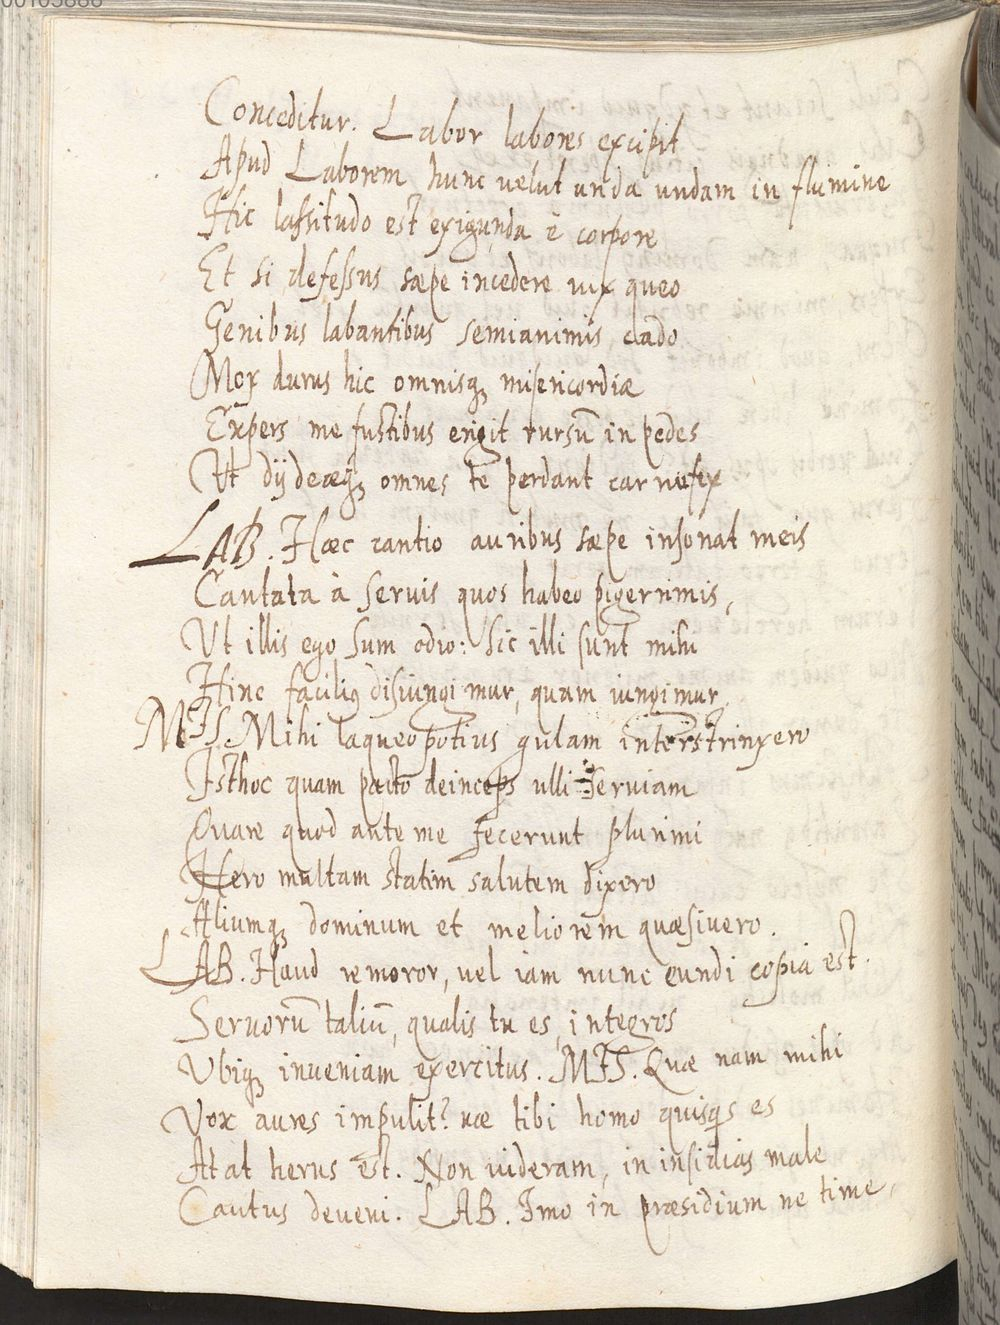 00105888
Conceditur. Labor labores excipit
Apud Laborem hunc velut unda undam in flumine
Hic lassitudo est exigunda è corpore
Et si defessus sæpe incedere vix queo
Genibus labantibus semianimis cado
Mox durus hic omnisqꝫ misericordiæ
Expers me fustibus erigit rursū in pedes
Ut dij deæqꝫ omnes te perdant carnufex
LAB. Hæc cantio auribus sæpe insonat meis
Cantata à servis quos habeo pigerrimis,
Ut illis ego sum odio: sic illi sunt mihi
Hinc facilius disiungimur, quam iungimur
MIS. Mihi laqueo potius gulam interstrinxero
Isthoc quam pacto deinceps ulli serviam
Quare quod ante me fecerunt plurimi
Hero multam statim salutem dixero
Aliumqꝫ dominum et meliorem quæsivero.
LAB. Haud remoror, vel iam nunc eundi copia est.
Servorū taliū, qualis tu es, integros
Ubiqꝫ inveniam exercitus. MIS. Quæ nam mihi
Vox aures impulit? væ tibi homo quisqs es
Atat herus est. Non videram, in insidias male
Cautus deveni. LAB. Imo in præsidium ne time,